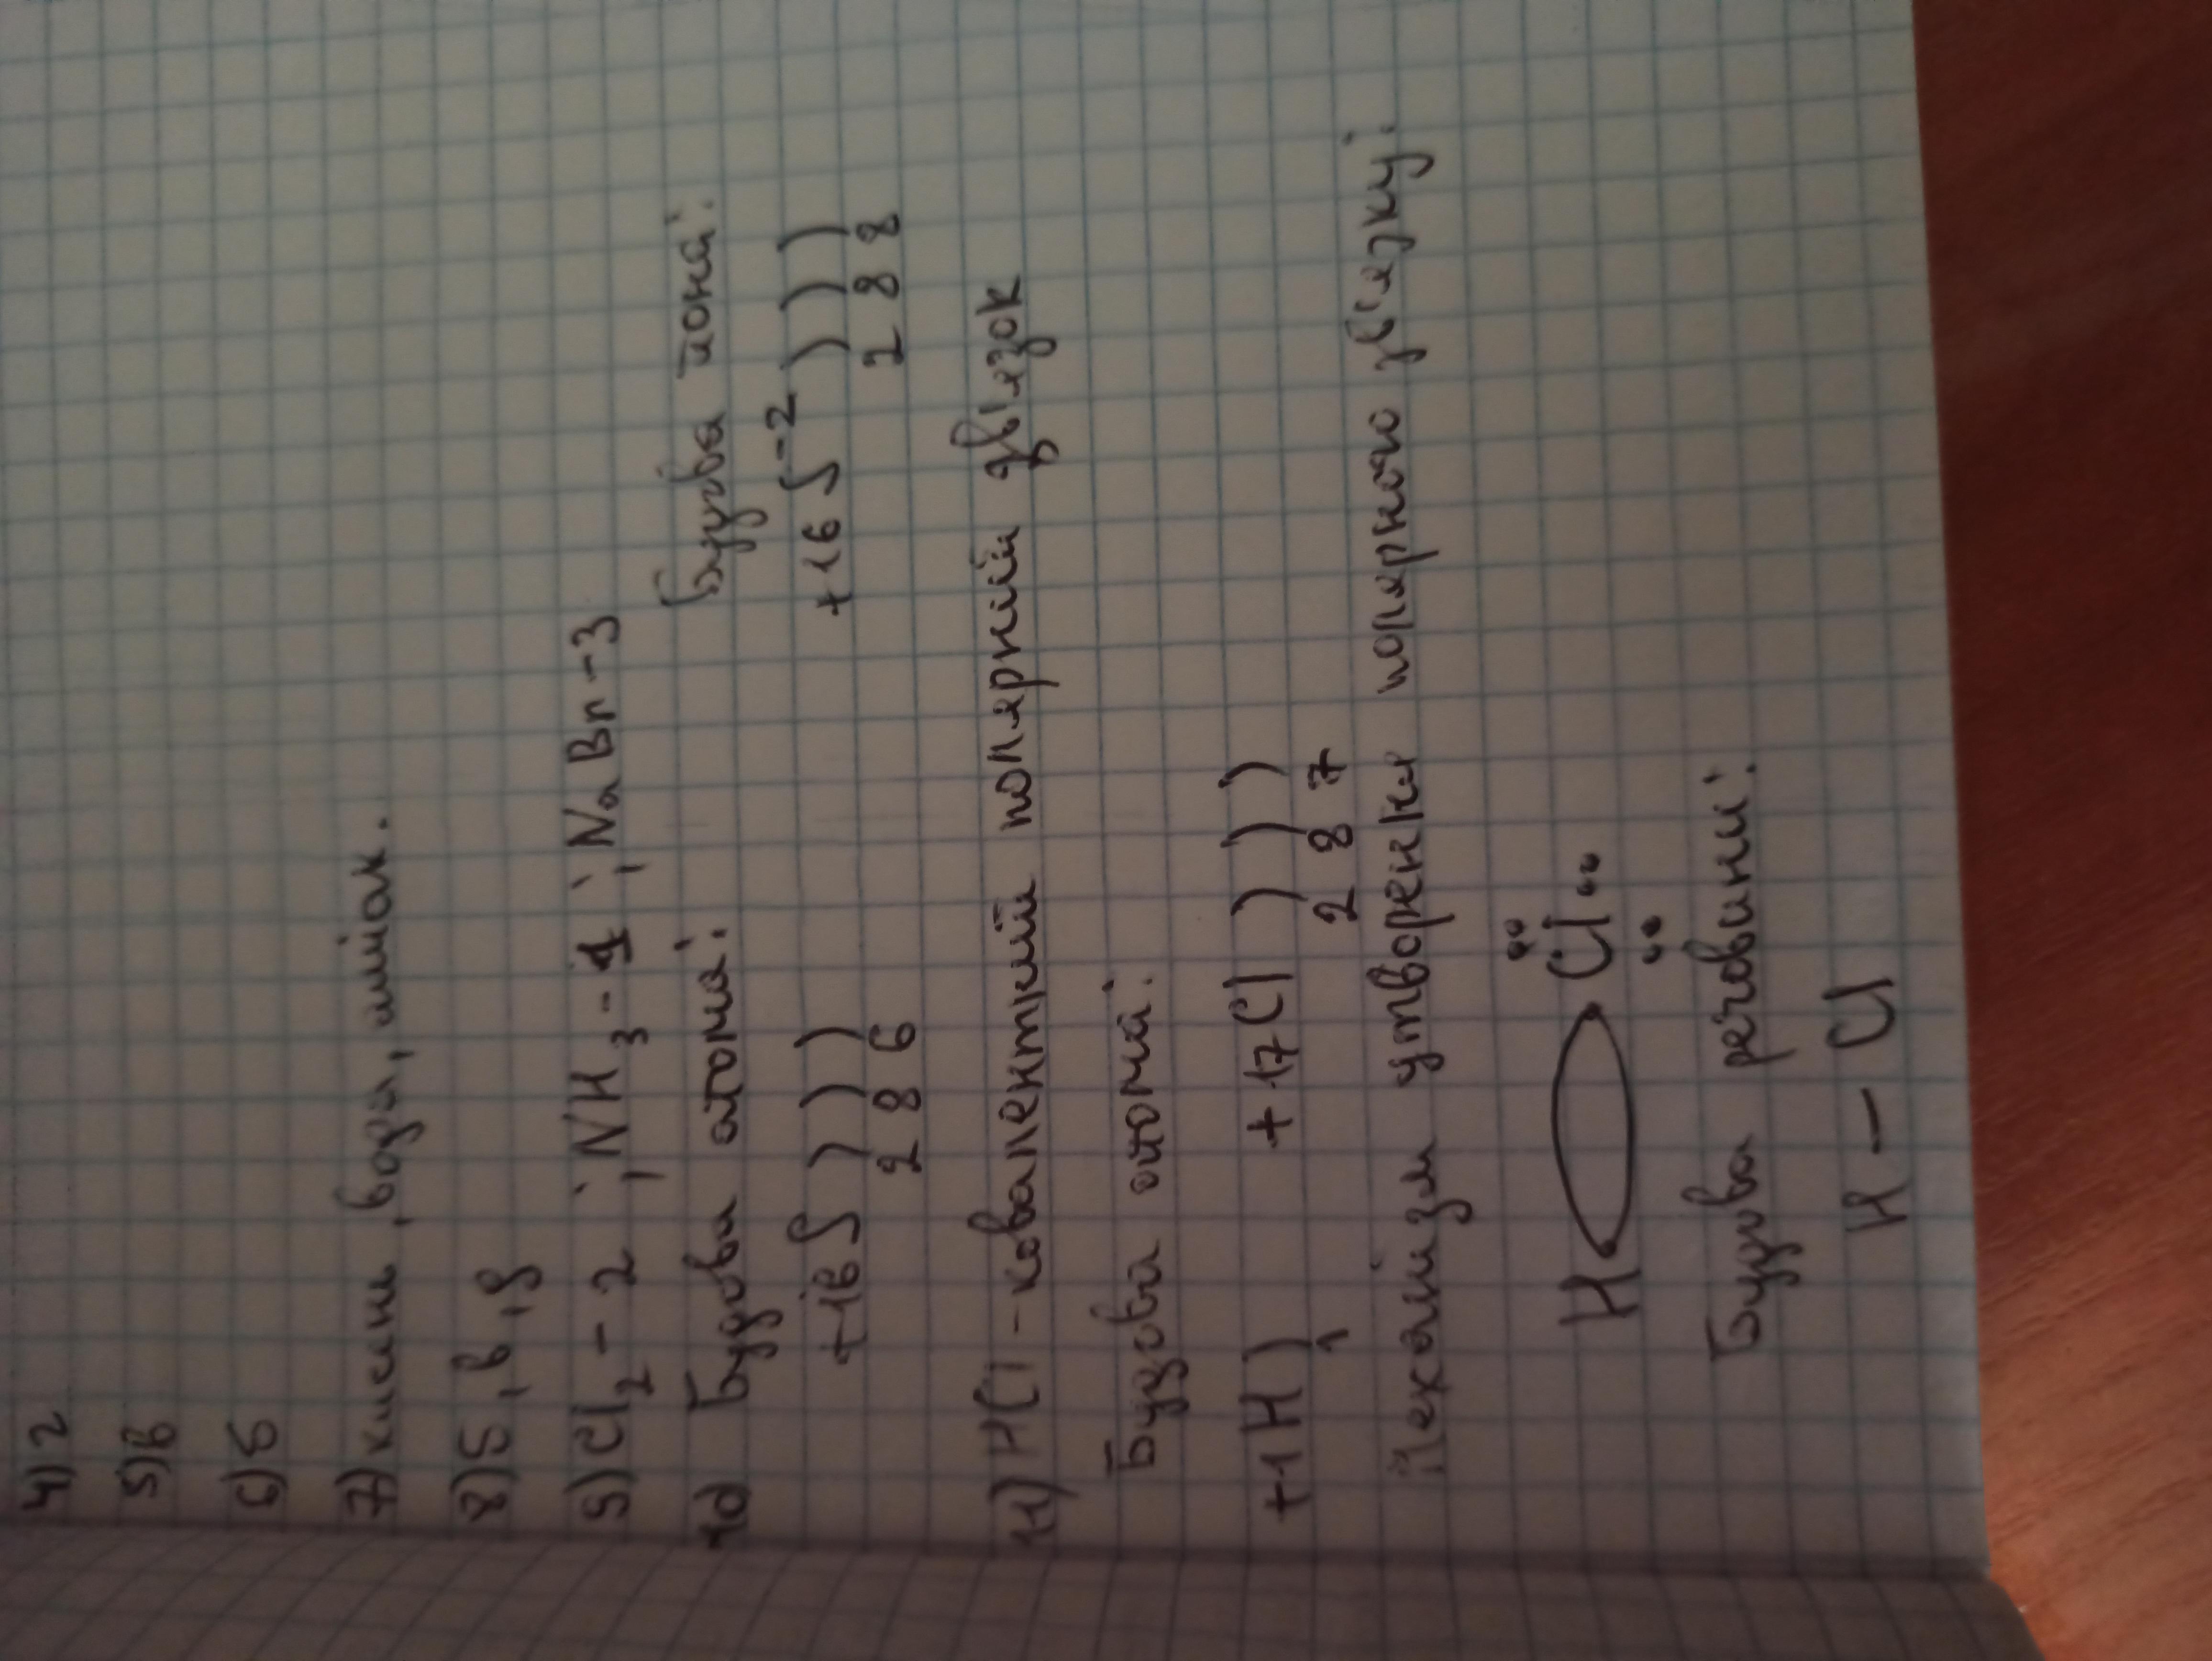 4) г
5) в
6) б
7) кисень, вода, аміак.
8) б, в, д
9) Cl2 - 2; NH3 - 1; NaBr - 3
10) Будова атома: Будова йона:
+16 S ) ) ) +16 S-2 ) ) )
2 8 6 2 8 8
11) HCl - ковалентний полярний зв'язок
Будова атома:
+1 H ) +17 Cl ) ) )
1 2 8 7
Механізм утворення полярного зв'язку:
H Cl
Будова речовини:
H - Cl